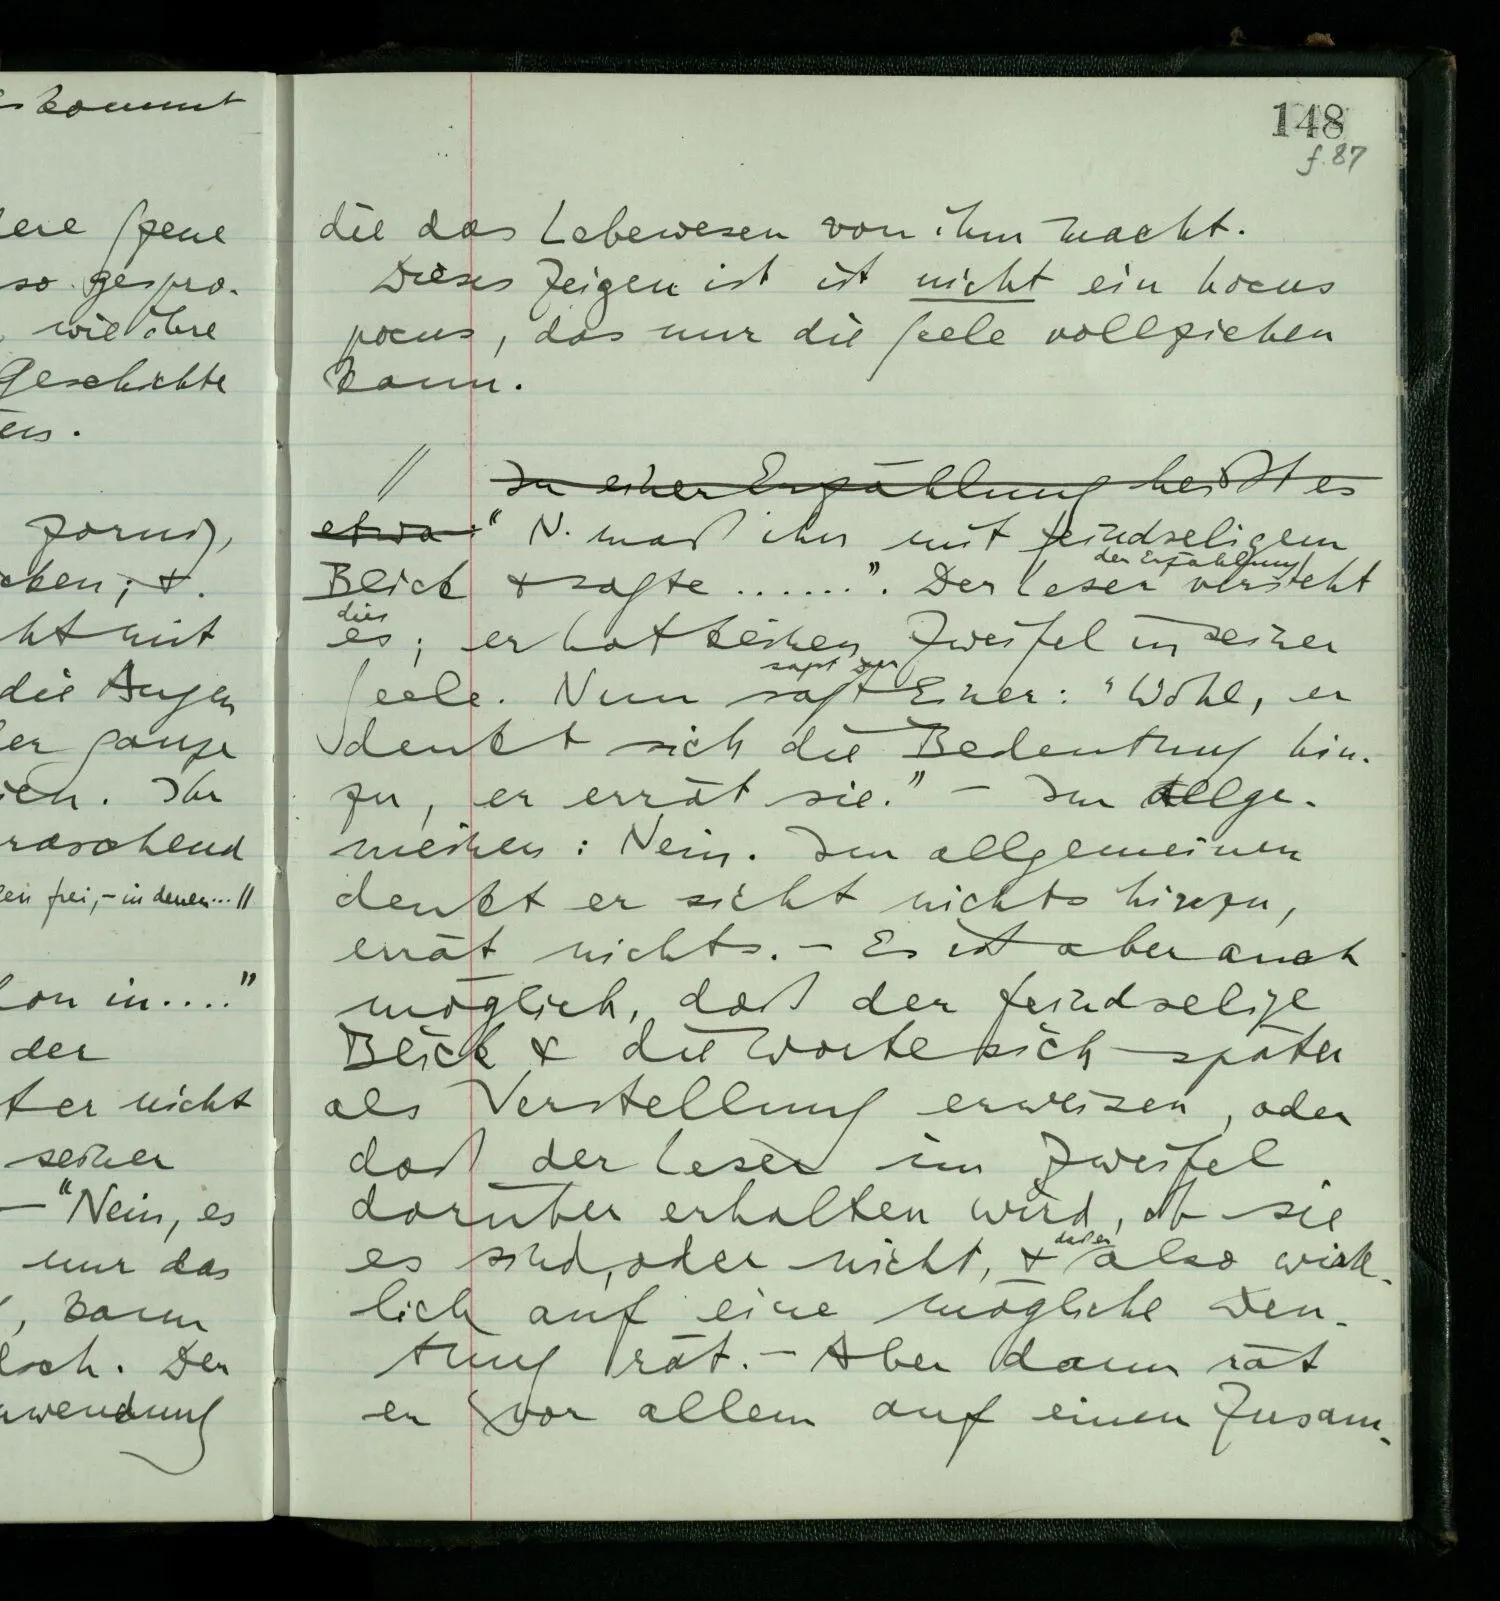 s kommt
ere Szene
so gespro-
, wie ihre
Geschichte
ens.
zornig,
cken; &
ht mit
die Augen
er ganze
ien. Ihr
raschend
en frei, – in denen... //
hon in ...."
der
t er nicht
seiner
– "Nein, es
nur das
, kann
lsch. Der
nwendung
148
f. 87
die das Lebewesen von ihm macht.
Dieses Zeigen ist ist nicht ein hocus
pocus, das nur die Seele vollziehen
kann.
// In einer Erzählung heißt es
etwa: "N. maß ihn mit feindseligem
der Erzählung
Blick & sagte ......". Der Leser versteht
dies
es; er hat keinen Zweifel in seiner
sagt Du
Seele. Nun sagt Einer: "Wohl, er
denkt sich die Bedeutung hin-
zu, er errät sie." – Im Allge-
meinen: Nein. Im allgemeinen
denkt er sicht nichts hinzu,
errät nichts. – Es ist aber auch
möglich, daß der feindselige
Blick & die Worte sich später
als Verstellung erweisen, oder
daß der Leser im Zweifel
darüber erhalten wird, ob sie
daß er
es sind, oder nicht, & also wirk-
lich auf eine mögliche Deu-
tung rät. – Aber dann rät
er vor allem auf einen Zusam-